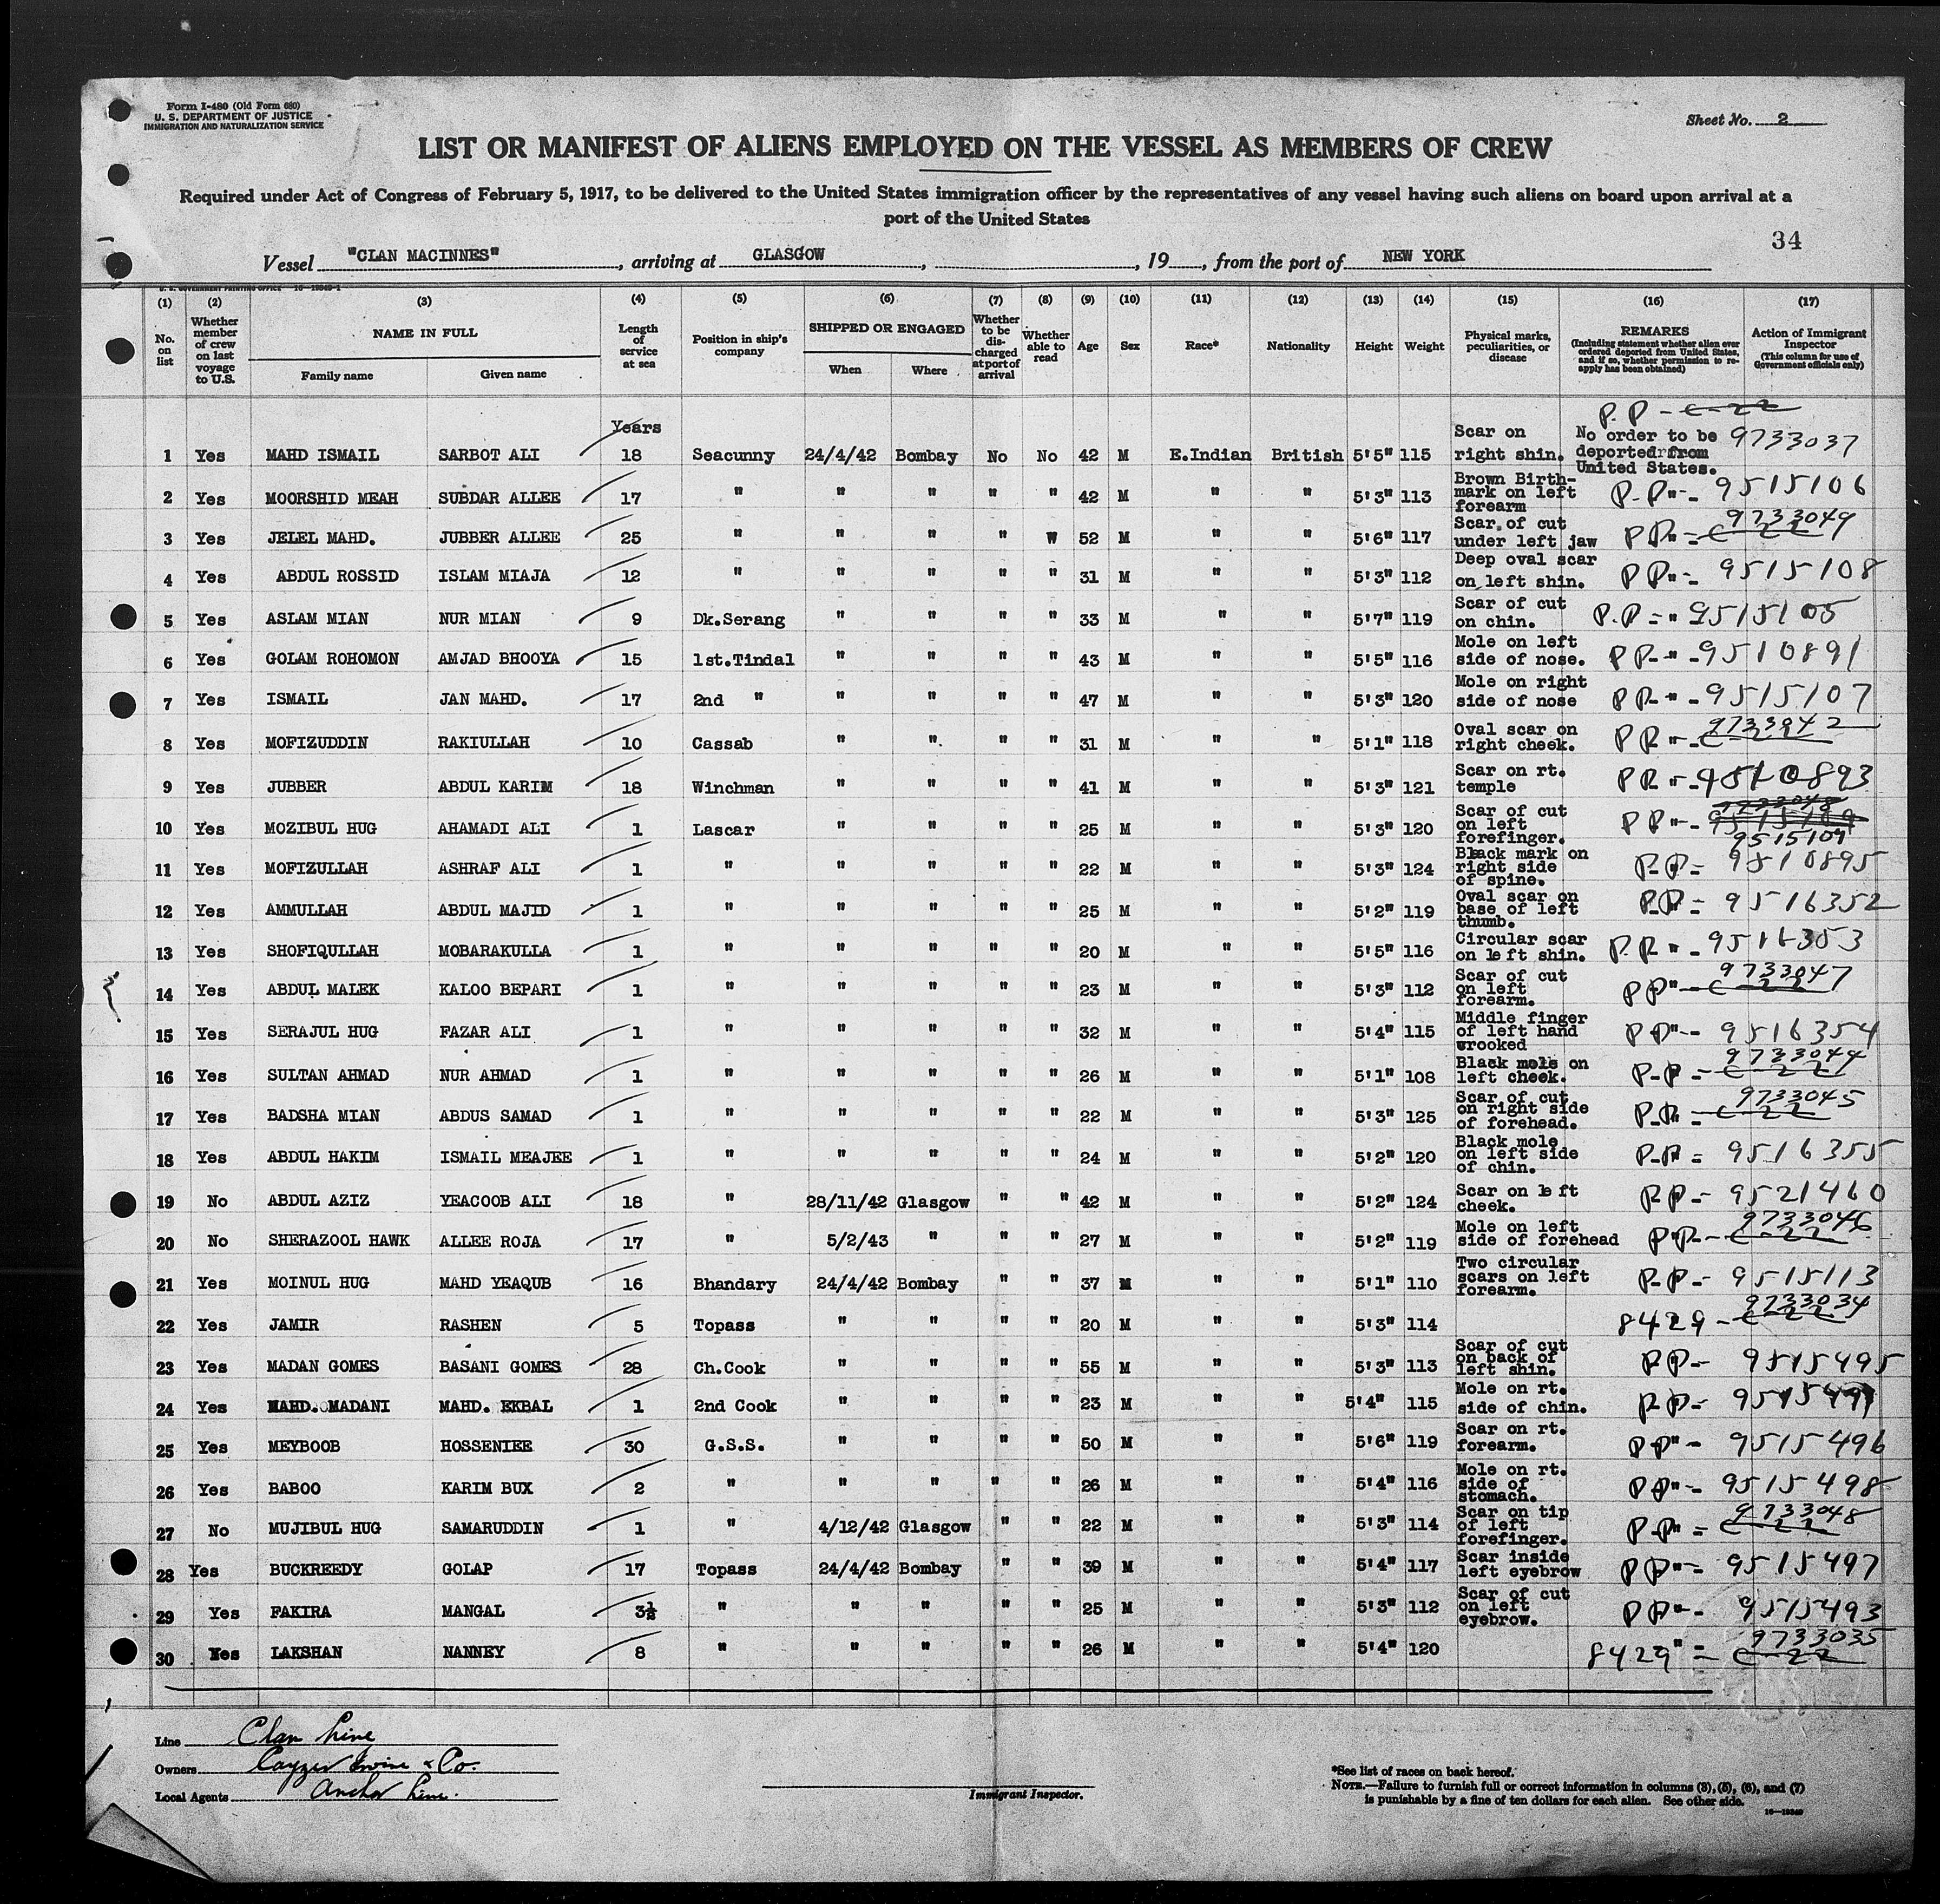 Form I-480 (Old Form 680)
U. S. DEPARTMENT OF JUSTICE
IMMIGRATION AND NATURALIZATION SERVICE
Sheet No. 2
LIST OR MANIFEST OF ALIENS EMPLOYED ON THE VESSEL AS MEMBERS OF CREW
Required under Act of Congress of February 5, 1917, to be delivered to the United States immigration officer by the representatives of any vessel having such aliens on board upon arrival at a
port of the United States
34
Vessel "CLAN MACINNES", arriving at GLASGOW, , 19 , from the port of NEW YORK
U. S. GOVERNMENT PRINTING OFFICE
(1) (2) (3) (4) (5) (6) (7) (8) (9) (10) (11) (12) (13) (14) (15) (16) (17)
No. on list
Whether member of crew on last voyage to U.S.
NAME IN FULL
Family name
Given name
Length of service at sea
Position in ship's company
SHIPPED OR ENGAGED
When
Where
Whether to be discharged at port of arrival
Whether able to read
Age
Sex
Race*
Nationality
Height
Weight
Physical marks, peculiarities, or disease
REMARKS
(Including statement whether alien ever ordered deported from United States, and if so, whether permission to reapply has been obtained)
Action of Immigrant Inspector
(This column for use of Government officials only)
Years
1 Yes MAHD ISMAIL SARBOT ALI 18 Seacunny 24/4/42 Bombay No No 42 M E.Indian British 5'5" 115 Scar on right shin. No order to be deported from United States. P.P - C-22 9733037
2 Yes MOORSHID MEAH SUBDAR ALLEE 17 " " " " " 42 M " " 5'3" 113 Brown Birth-mark on left forearm P-P"- 9515106
3 Yes JELEL MAHD. JUBBER ALLEE 25 " " " " " 52 M " " 5'6" 117 Scar of cut under left jaw PP"- C-22 9733049
4 Yes ABDUL ROSSID ISLAM MIAJA 12 " " " " " 31 M " " 5'3" 112 Deep oval scar on left shin. PP"- 9515108
5 Yes ASLAM MIAN NUR MIAN 9 Dk.Serang " " " " 33 M " " 5'7" 119 Scar of cut on chin. P.P-"- 9515105
6 Yes GOLAM ROHOMON AMJAD BHOOYA 15 1st.Tindal " " " " 43 M " " 5'5" 116 Mole on left side of nose. PP-"- 9510891
7 Yes ISMAIL JAN MAHD. 17 2nd " " " " " 47 M " " 5'3" 120 Mole on right side of nose PP-"- 9515107
8 Yes MOFIZUDDIN RAKIULLAH 10 Cassab " " " " 31 M " " 5'1" 118 Oval scar on right cheek. PP"- C-22 9733042
9 Yes JUBBER ABDUL KARIM 18 Winchman " " " " 41 M " " 5'3" 121 Scar on rt. temple PP"- 9510893
10 Yes MOZIBUL HUG AHAMADI ALI 1 Lascar " " " " 25 M " " 5'3" 120 Scar of cut on left forefinger. PP"- 9733048 9515109 9515109
11 Yes MOFIZULLAH ASHRAF ALI 1 " " " " " 22 M " " 5'3" 124 Black mark on right side of spine. P-P- 9510895
12 Yes AMMULLAH ABDUL MAJID 1 " " " " " 25 M " " 5'2" 119 Oval scar on base of left thumb. P.P- 9516352
13 Yes SHOFIQULLAH MOBARAKULLA 1 " " " " " 20 M " " 5'5" 116 Circular scar on left shin. P.P"- 9516353
14 Yes ABDUL MALEK KALOO BEPARI 1 " " " " " 23 M " " 5'3" 112 Scar of cut on left forearm. PP"- C-22 9733047
15 Yes SERAJUL HUG FAZAR ALI 1 " " " " " 32 M " " 5'4" 115 Middle finger of left hand crooked PP"- 9516354
16 Yes SULTAN AHMAD NUR AHMAD 1 " " " " " 26 M " " 5'1" 108 Black mole on left cheek. P-P- C-22 9733044
17 Yes BADSHA MIAN ABDUS SAMAD 1 " " " " " 22 M " " 5'3" 125 Scar of cut on right side of forehead. P-P- C-22 9733045
18 Yes ABDUL HAKIM ISMAIL MEAJEE 1 " " " " " 24 M " " 5'2" 120 Black mole on left side of chin. P-P- 9516355
19 No ABDUL AZIZ YEACOOB ALI 18 " 28/11/42 Glasgow " " 42 M " " 5'2" 124 Scar on left cheek. PP- 9521460
20 No SHERAZOOL HAWK ALLEE ROJA 17 " 5/2/43 " " " 27 M " " 5'2" 119 Mole on left side of forehead P-P- C-22 9733046
21 Yes MOINUL HUG MAHD YEAQUB 16 Bhandary 24/4/42 Bombay " " 37 M " " 5'1" 110 Two circular scars on left forearm. P-P- 9515113
22 Yes JAMIR RASHEN 5 Topass " " " " 20 M " " 5'3" 114 8429 - C-22 9733034
23 Yes MADAN GOMES BASANI GOMES 28 Ch.Cook " " " " 55 M " " 5'3" 113 Scar of cut on back of left shin. PP- 9515495
24 Yes MAHD. MADANI MAHD. EKBAL 1 2nd Cook " " " " 23 M " " 5'4" 115 Mole on rt. side of chin. PP-
25 Yes MEYBOOB HOSSENIEE 30 G.S.S. " " " " 50 M " " 5'6" 119 Scar on rt. forearm. PP"- 9515496
26 Yes BABOO KARIM BUX 2 " " " " " 26 M " " 5'4" 116 Mole on rt. side of stomach. PP"- 9515498
27 No MUJIBUL HUG SAMARUDDIN 1 " 4/12/42 Glasgow " " 22 M " " 5'3" 114 Scar on tip of left forefinger. P-P"- C-22 9733048
28 Yes BUCKREEDY GOLAP 17 Topass 24/4/42 Bombay " " 39 M " " 5'4" 117 Scar inside left eyebrow PP"- 9515497
29 Yes FAKIRA MANGAL 3½ " " " " " 25 M " " 5'3" 112 Scar of cut on left eyebrow. PP"- 9515493
30 Yes LAKSHAN NANNEY 8 " " " " " 26 M " " 5'4" 120 8429"- C-22 9733035
Line Clan Line
Owners Cayzer Irvine & Co.
Local Agents Anchor Line.
Immigrant Inspector.
*See list of races on back hereof.
NOTE.—Failure to furnish full or correct information in columns (3), (5), (6), and (7)
is punishable by a fine of ten dollars for each alien. See other side.